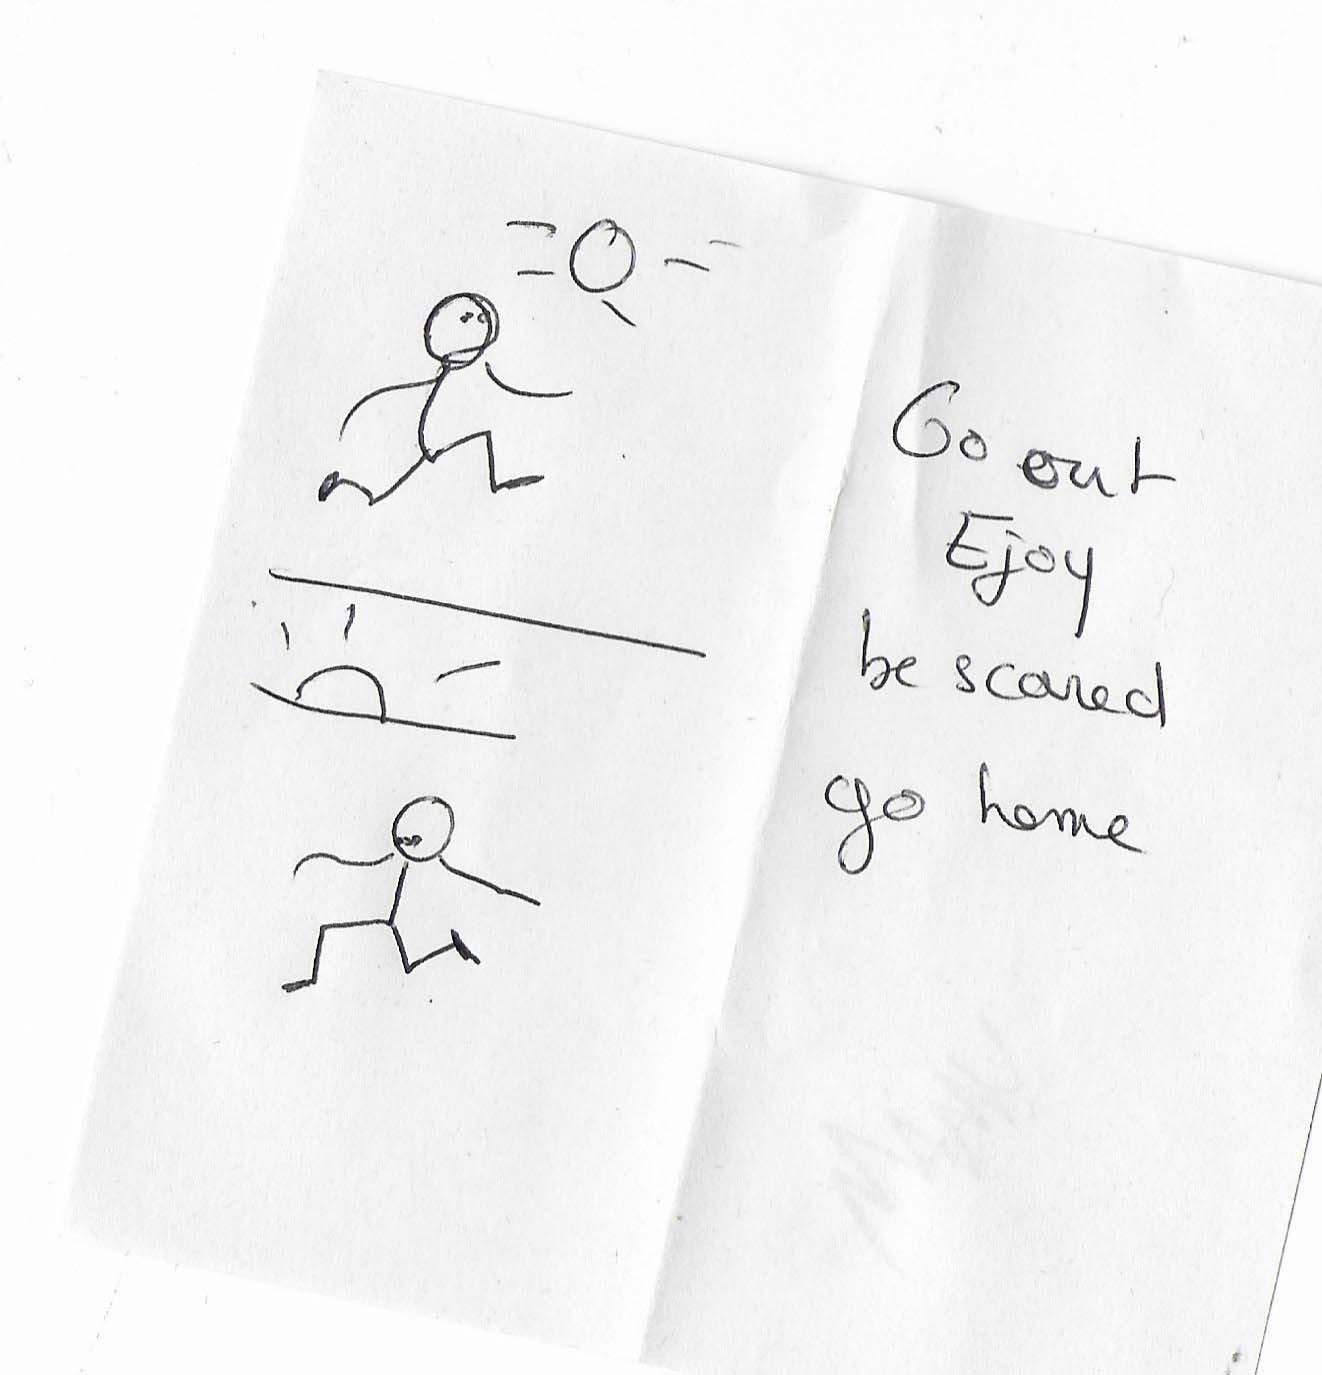 Go out
Ejoy
be scared
go home